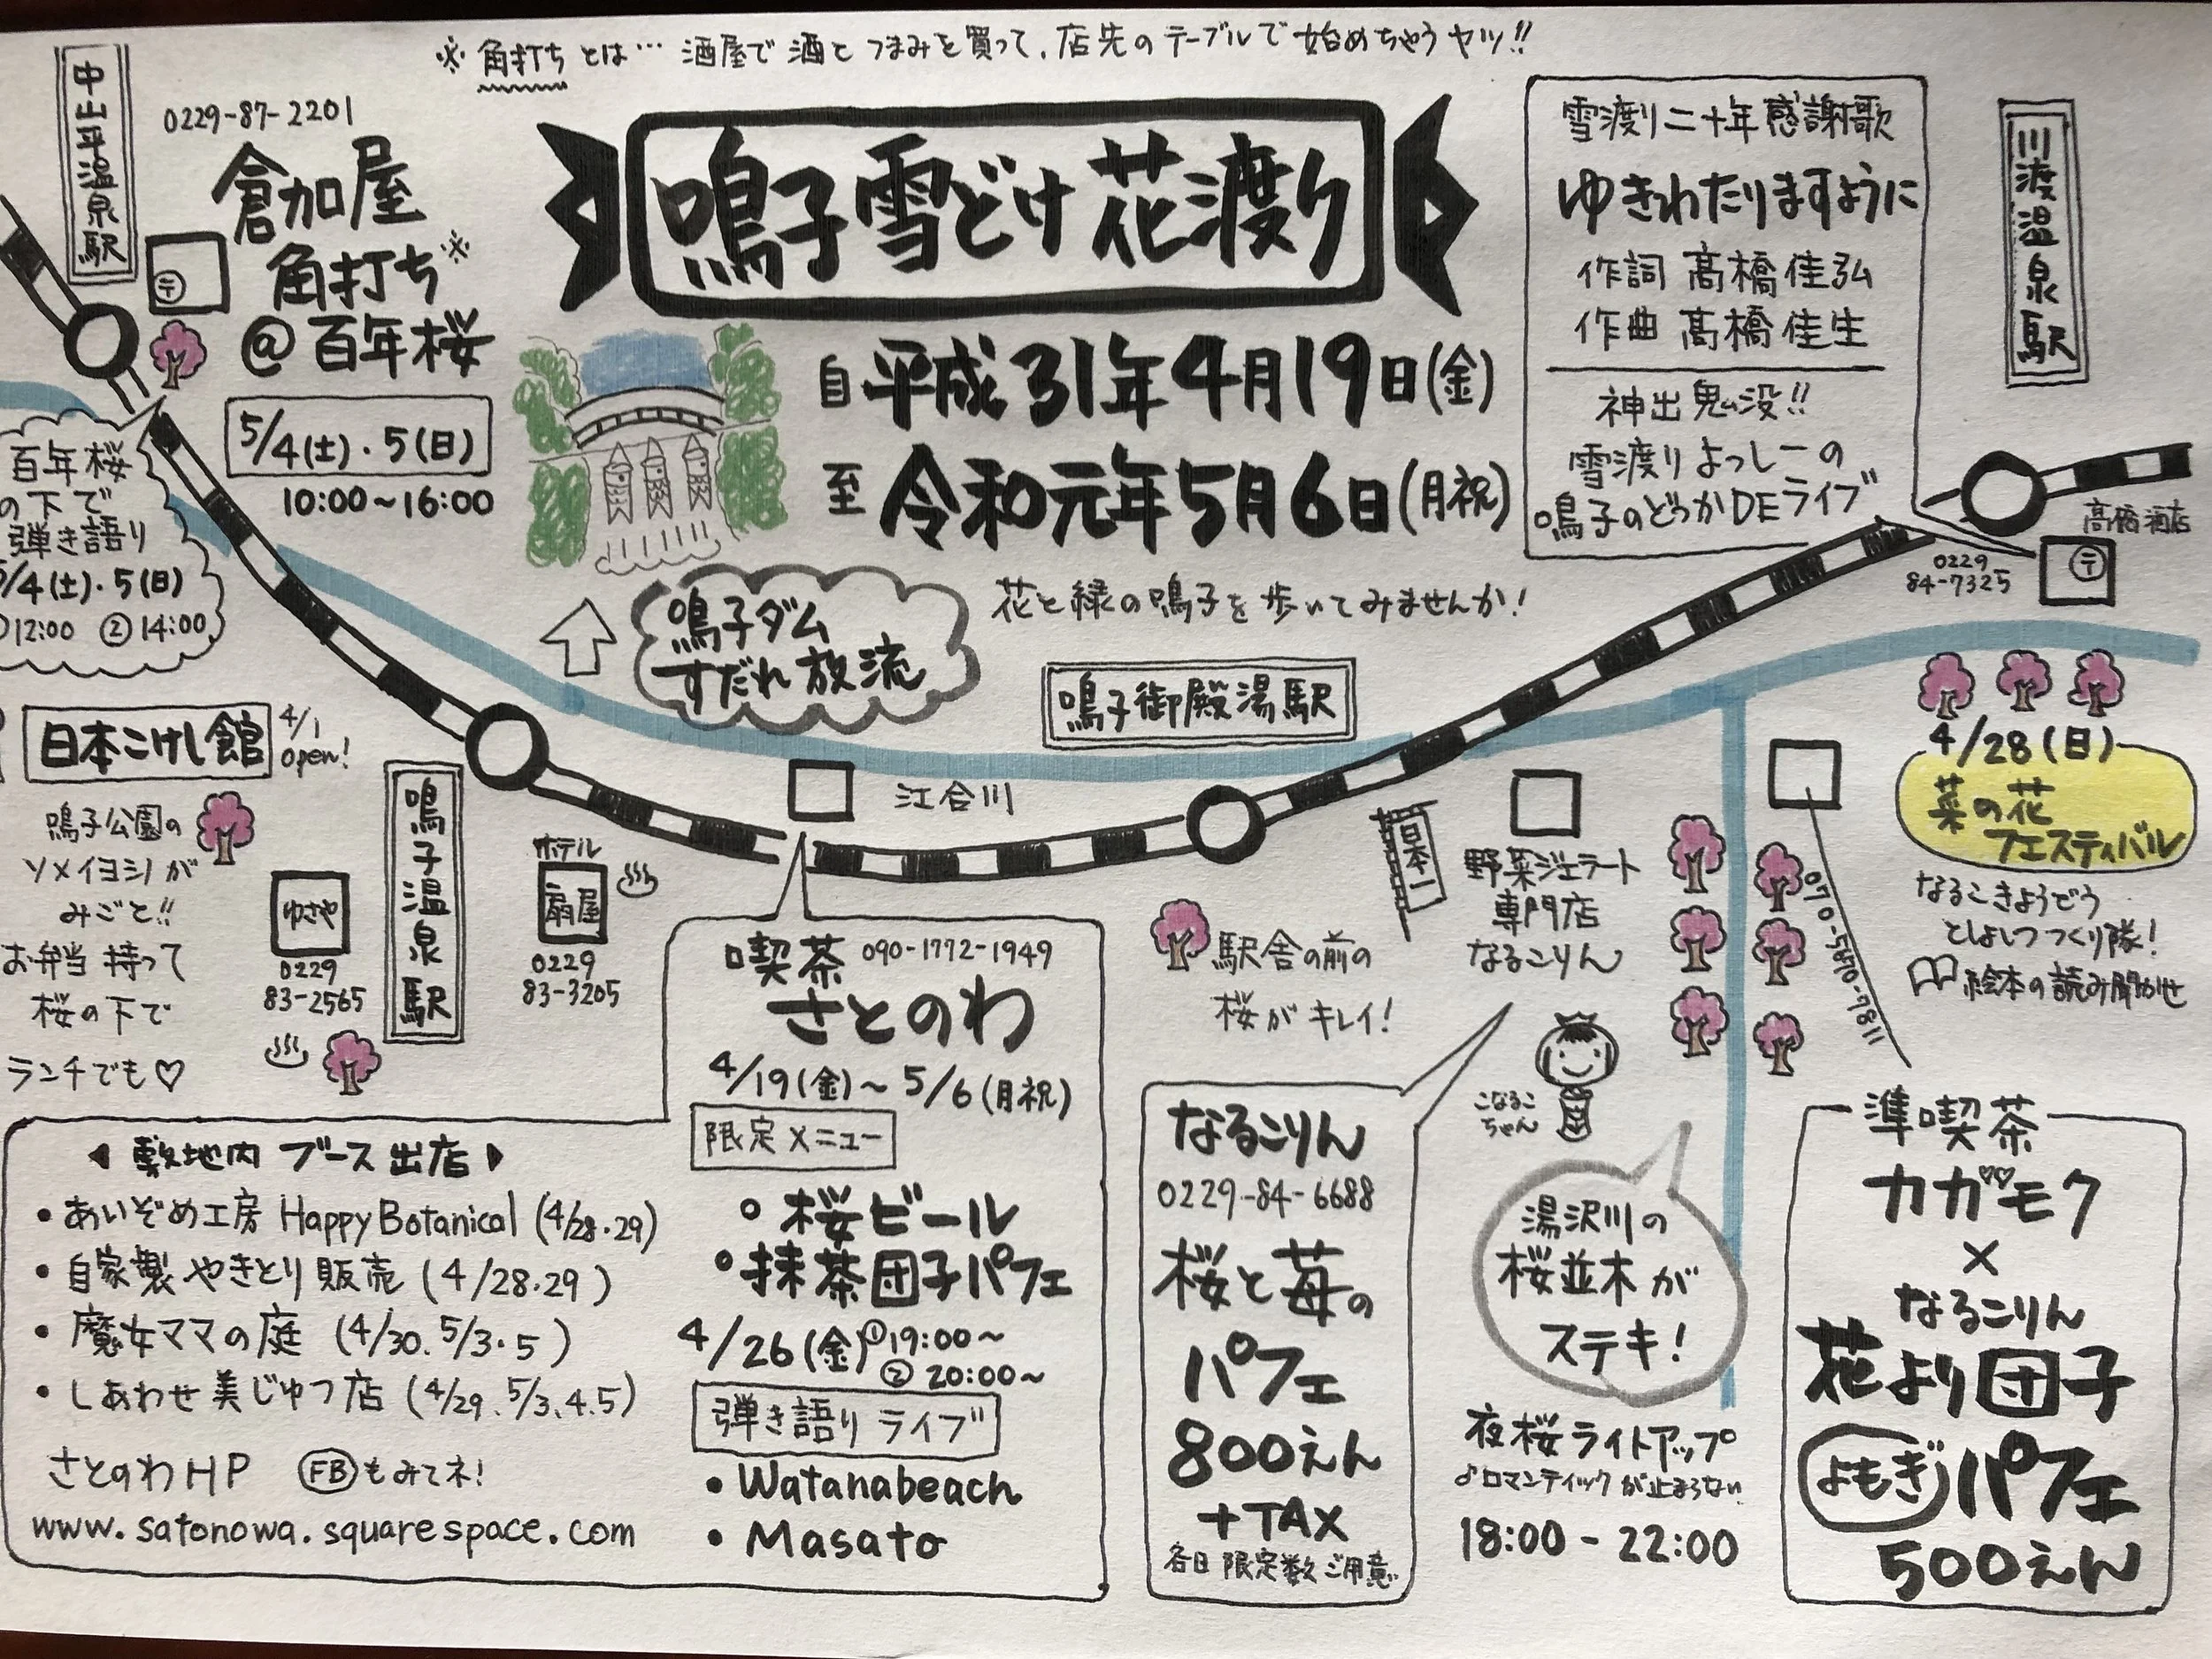 ※角打ちとは… 酒屋で酒とつまみを買って、店先のテーブルで始めちゃうヤツ!!
中山平温泉駅
0229-87-2201
倉加屋
角打ち※
@百年桜
5/4(土)・5(日)
10:00~16:00
〒
百年桜
の下で
弾き語り
5/4(土)・5(日)
12:00 ②14:00
鳴子雪どけ花渡り
自平成31年4月19日(金)
至令和元年5月6日(月祝)
花と緑の鳴子を歩いてみませんか!
鳴子ダム
すだれ放流
雪渡り二十年感謝歌
ゆきわたりますように
作詞 髙橋佳弘
作曲 髙橋佳生
神出鬼没!!
雪渡りよっしーの
鳴子のどっかDEライブ
川渡温泉駅
髙橋酒店
〒
0229
84-7325
日本こけし館
4/1
open!
鳴子公園の
ソメイヨシノが
みごと!!
お弁当持って
桜の下で
ランチでも♡
ゆさや
0229
83-2565
鳴子温泉駅
ホテル
扇屋
0229
83-3205
江合川
鳴子御殿湯駅
日本一
駅舎の前の
桜がキレイ!
野菜ジェラート
専門店
なるこりん
こなるこ
ちゃん
070-5870-7811
4/28(日)
菜の花
フェスティバル
なるこきょうどう
としょしつつくり隊!
絵本の読み聞かせ
喫茶 090-1772-1949
さとのわ
4/19(金)~5/6(月祝)
限定メニュー
•桜ビール
•抹茶団子パフェ
4/26(金)①19:00~
②20:00~
弾き語りライブ
•Watanabeach
•Masato
敷地内ブース出店
•あいぞめ工房 Happy Botanical (4/28・29)
•自家製やきとり販売 (4/28・29)
•魔女ママの庭 (4/30. 5/3・5)
•しあわせ美じゅつ店 (4/29. 5/3.4.5)
さとのわHP FBもみてネ!
www.satonowa.squarespace.com
なるこりん
0229-84-6688
桜と苺の
パフェ
800えん
+TAX
各日限定数ご用意
湯沢川の
桜並木が
ステキ!
夜桜ライトアップ
♪ロマンティックが止まらない
18:00-22:00
準喫茶
カガモク
×
なるこりん
花より団子
よもぎパフェ
500えん